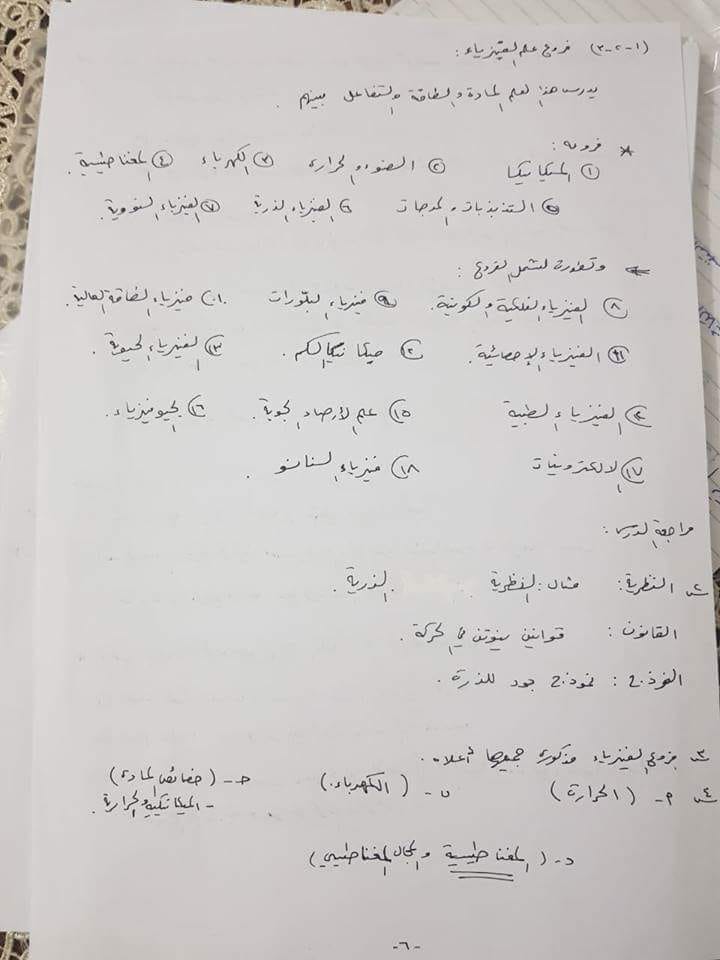 (١-٢-٣) فروع علم الفيزياء :
يدرس هذا العلم المادة والطاقة والتفاعل بينهم .
* فروعه :
١ الميكانيكا ٢ الضوء والحرارة ٣ الكهرباء ٤ المغناطيسية .
٥ التذبذبات والموجات ٦ الفيزياء الذرية ٧ الفيزياء النووية .
* وتطورت لتشمل الفروع :
٨ الفيزياء الفلكية والكونية . ٩ فيزياء البلورات ١٠ فيزياء الطاقة العالية .
١١ الفيزياء الإحصائية . ١٢ ميكانيكا الكم . ١٣ الفيزياء الحيوية .
١٤ الفيزياء الطبية ١٥ علم الأرصاد الجوية . ١٦ الجيوفيزياء .
١٧ الالكترونيات ١٨ فيزياء النانو .
مراجعة الدرس :
س٢ النظرية : مثال : النظرية الذرية .
القانون : قوانين نيوتن في الحركة .
النموذج : نموذج بور للذرة .
س٣ فروع الفيزياء مذكورة جميعها أعلاه .
س٤ أ- (الحرارة) ب- (الكهرباء .) جـ- (خصائص المادة)
- الميكانيكية والحرارة .
د- (المغناطيسية والمجال المغناطيسي)
-٦-